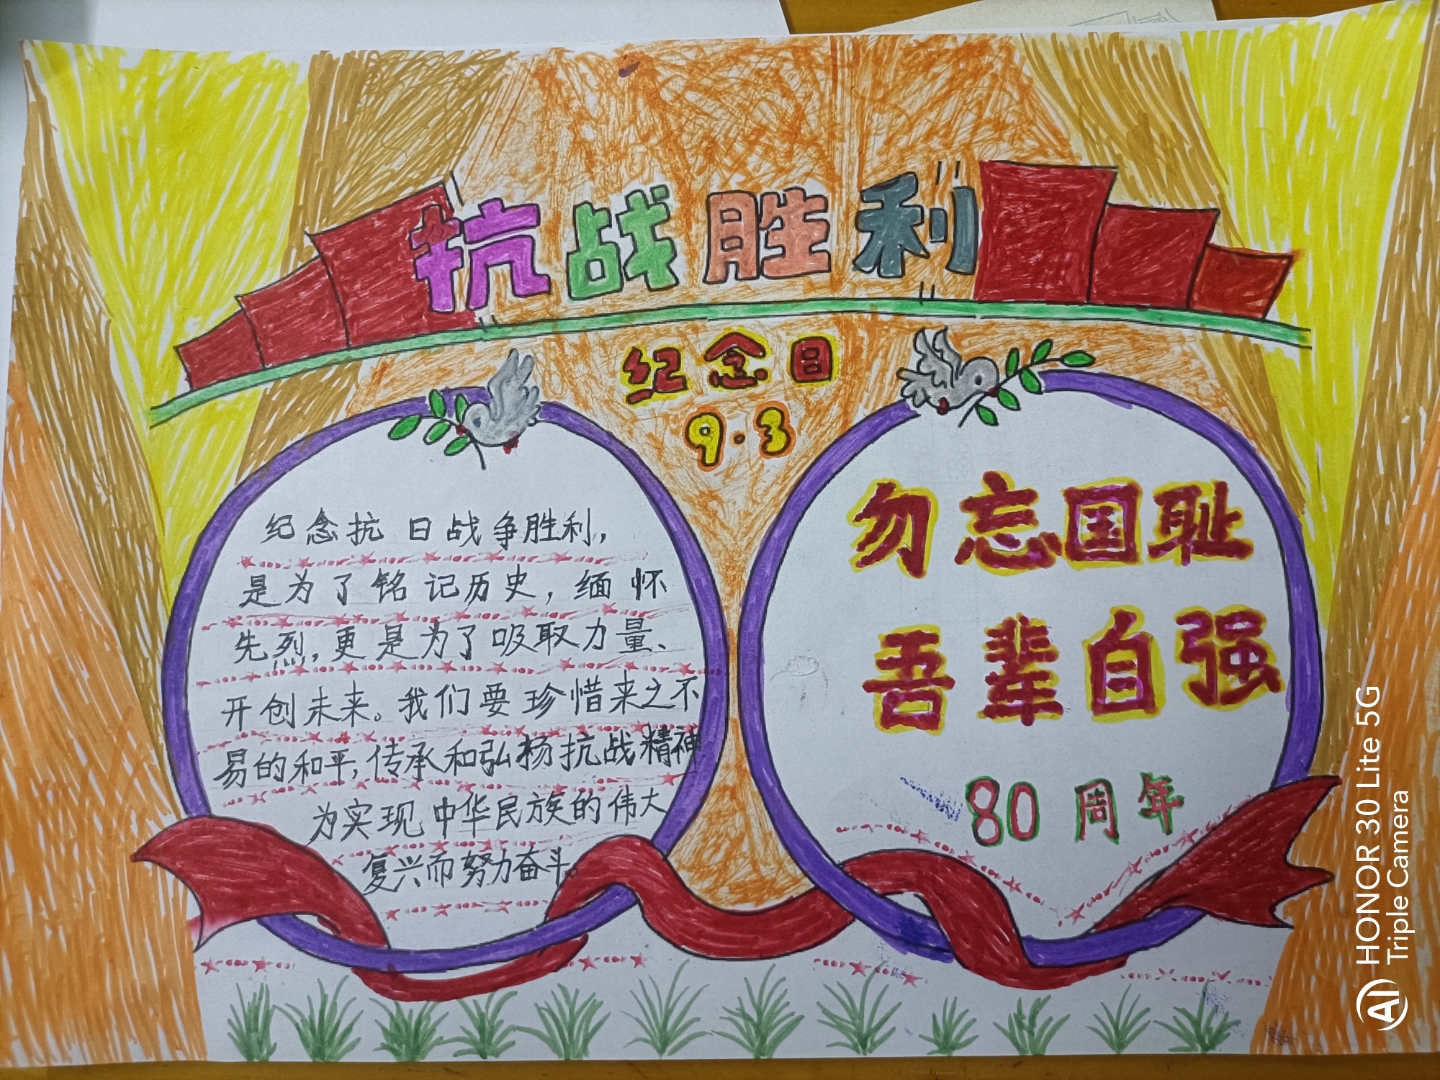 抗战胜利
纪念日
9·3
纪念抗日战争胜利,
是为了铭记历史,缅怀
先烈,更是为了吸取力量、
开创未来。我们要珍惜来之不
易的和平,传承和弘杨抗战精神
为实现中华民族的伟大
复兴而努力奋斗。
勿忘国耻
吾辈自强
80周年
HONOR 30 Lite 5G
Triple Camera
AI